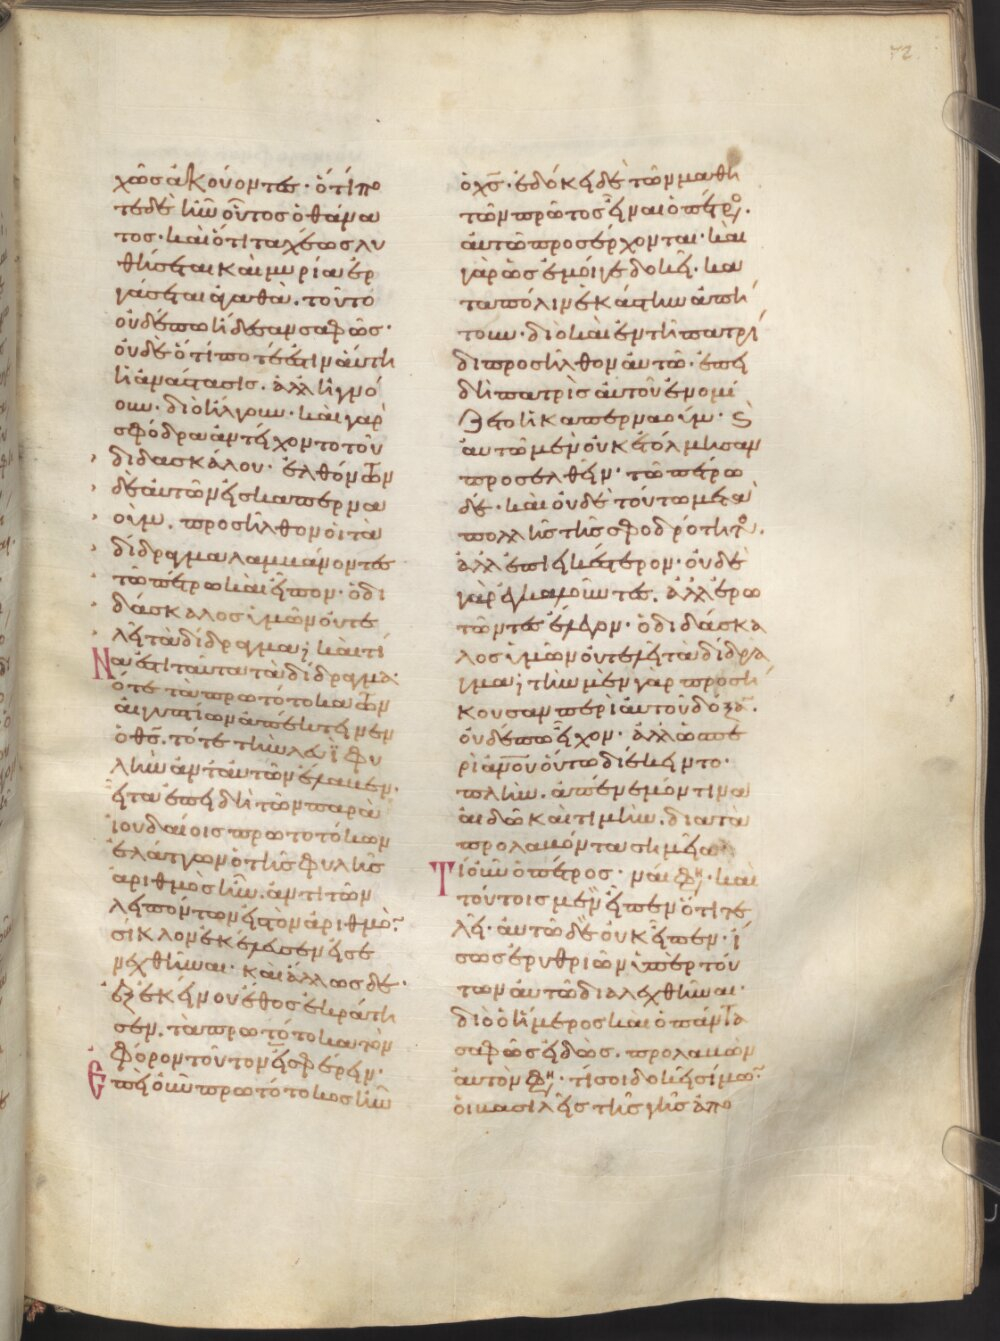 72
χῶς ἀκούοντες· ὅτι πο
τὲ δὲ ἦν οὗτος ὁ θάνα
τος· καὶ ὅτι ταχέως λυ
θήσεται καὶ μυρία ἐρ
γάσεται ἀγαθὰ. τοῦτο
οὐδέπω ἤδεσαν σαφῶς·
οὐδὲ ὅτι ποτέ ἐστιν αὕτη
ἡ ἀνάστασις. ἀλλ ἠγνό
ουν· διὸ ἤλγουν· καὶ γὰρ
σφόδρα ἀντείχοντο τοῦ
διδασκάλου· ἐλθόντων
δὲ αὐτῶν εἰς καπερνα
οὺμ. προσῆλθον οἱ τὰ
δίδραγμα λαμβάνοντες
τῶ πέτρω καὶ εἶπον· ὁ δι
δάσκαλος ὑμῶν οὐ τε
λεῖ τὰ δίδραγμα; καὶ τί
να ἐστὶ ταῦτα τὰ δίδραγμα·
ὅτε τὰ πρωτότοκα τῶν
αἰγυπτίων ἀπέκτεινεν
ὁ θς. τότε τὴν λευὶ φυ
λὴν ἀντ αὐτῶν ἔλαβεν·
εἶτα ἐπειδὴ τῶν παρὰ
ἰουδαίοις πρωτοτόκων
ἐλάττων ὁ τῆς φυλῆς
ἀριθμὸς ἦν. ἀντὶ τῶν
λειπόντων εἰς τὸν ἀριθμὸν
σίκλον ἐκέλευσεν εἰσε
νεχθῆναι· καὶ ἄλλως δὲ·
ἐξ ἐκείνου ἔθος ἐκράτη
σεν. τὰ πρωτότοκα τὸν
φόρον τοῦτον εἰσφέρειν·
ἐπεὶ οὖν πρωτότοκος ἦν
ὁ χς· ἐδόκει δὲ τῶν μαθη
τῶν πρῶτος εἶναι ὁ πέτρος.
αὐτῶ προσέρχονται· καὶ
γὰρ ὡς ἔμοιγε δοκεῖ· κα
τὰ πόλιν ἑκάστην ἀπή
τουν· διὸ καὶ ἐν τῆ πατρί
δι προσῆλθον αὐτῶ· ἐπει
δὴ πατρὶς αὐτοῦ ἐνομί
ζετο ἡ καπερναούμ· καὶ
αὐτῶ μὲν οὐκ ἐτόλμησαν
προσελθεῖν· τῶ πέτρω
δέ· καὶ οὐδὲ τούτω μετὰ
πολλῆς τῆς σφοδρότητος.
ἀλλ ἐπιεικέστερον· οὐδὲ
γὰρ ἐγκαλοῦντες. ἀλλ ἐρω
τῶντες ἔλεγον· ὁ διδάσκα
λος ὑμῶν οὐ τελεῖ τὰ δίδρα
γμα; τὴν μὲν γὰρ προσή
κουσαν περὶ αὐτοῦ δόξαν.
οὐδέπω εἶχον· ἀλλ ὡς πε
ρὶ ἀνου οὕτω διέκειντο·
πλὴν. ἀπένεμόν τινα
αἰδῶ καὶ τιμὴν. διὰ τὰ
προλαβόντα σημεῖα·
τί οὖν ὁ πέτρος· ναί φησι· καὶ
τούτοις μὲν εἶπεν ὅτι τε
λεῖ· αὐτῶ δὲ οὐκ εἶπεν· ἴ
σως ἐρυθριῶν ὑπὲρ τού
των αὐτῶ διαλεχθῆναι·
διὸ ὁ ἥμερος καὶ ὁ πάντα
σαφῶς εἰδὼς. προλαβὼν
αὐτὸν φησι· τί σοι δοκεῖ σίμων·
οἱ βασιλεῖς τῆς γῆς ἀπὸ